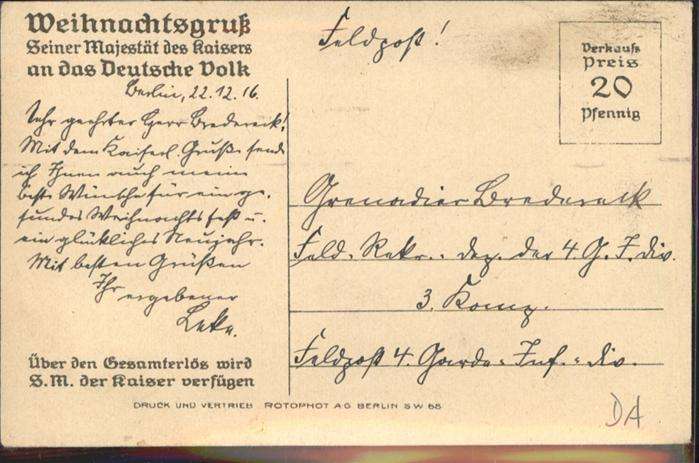 Weihnachtsgruß
Seiner Majestät des Kaisers
an das Deutsche Volk
Berlin, 22.12.16.
Sehr geehrter Herr Bredereck!
Mit dem Kaiserl. Gruße sende
ich Ihnen auch meine
beste Wünsche für ein ge-
sundes Weihnachtsfest u.
ein glükliches Neujahr.
Mit besten Grüßen
Ihr ergebener
Über den Gesamterlös wird
S.M. der Kaiser verfügen
Feldpost!
Verkaufs
Preis
20
Pfennig
Grenadier Bredereck
Feld. Rekr.-Dep. der 4. G. J. Div.
3. Komp.
Feldpost 4. Garde-Inf.-Div.
DRUCK UND VERTRIEB ROTOPHOT AG BERLIN SW 68
DA